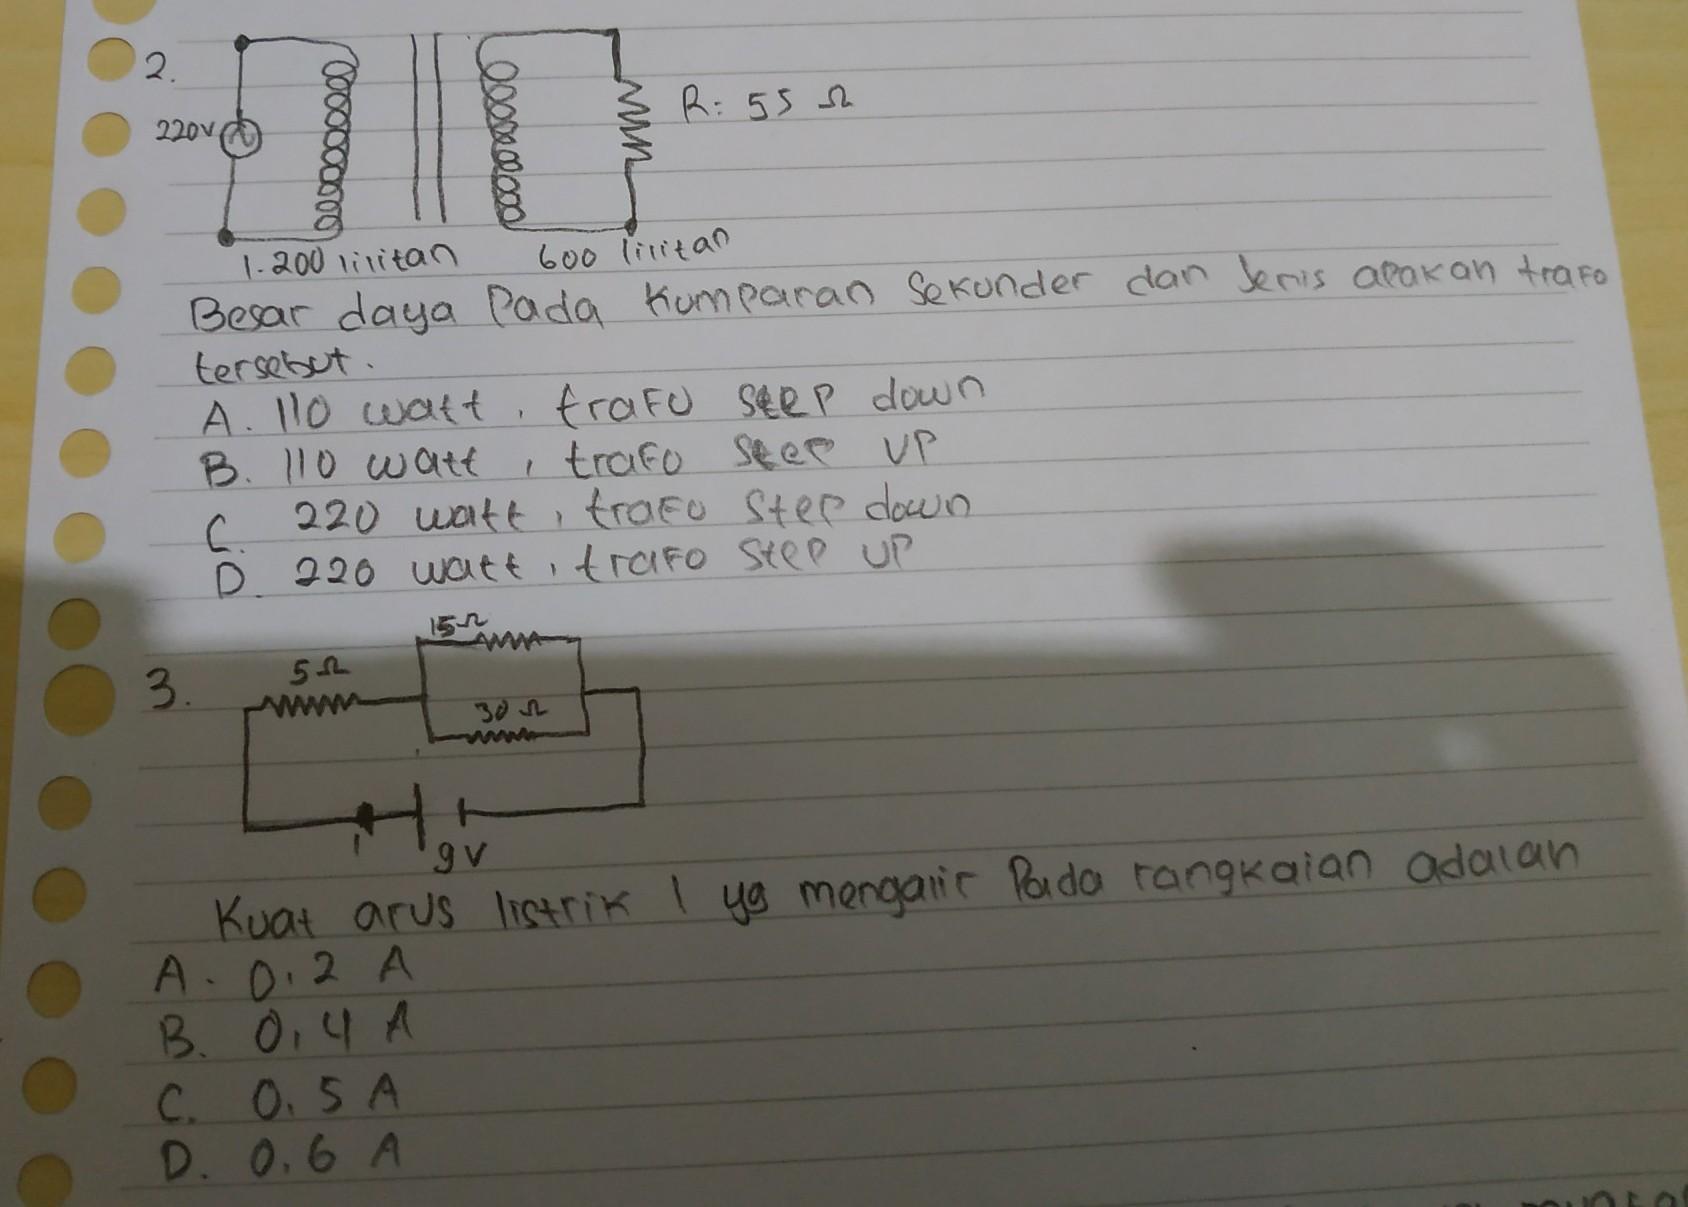 2.
220V
R: 55 Ω
1.200 lilitan 600 lilitan
Besar daya Pada Kumparan Sekunder dan Jenis apakah trafo
tersebut.
A. 110 watt, trafo step down
B. 110 watt, trafo step UP
C. 220 watt, trafo step down
D. 220 watt, trafo step UP
3.
15Ω
5Ω
30Ω
I
9V
Kuat arus listrik I yg mengalir Pada rangkaian adalah
A. 0,2 A
B. 0,4 A
C. 0,5 A
D. 0,6 A